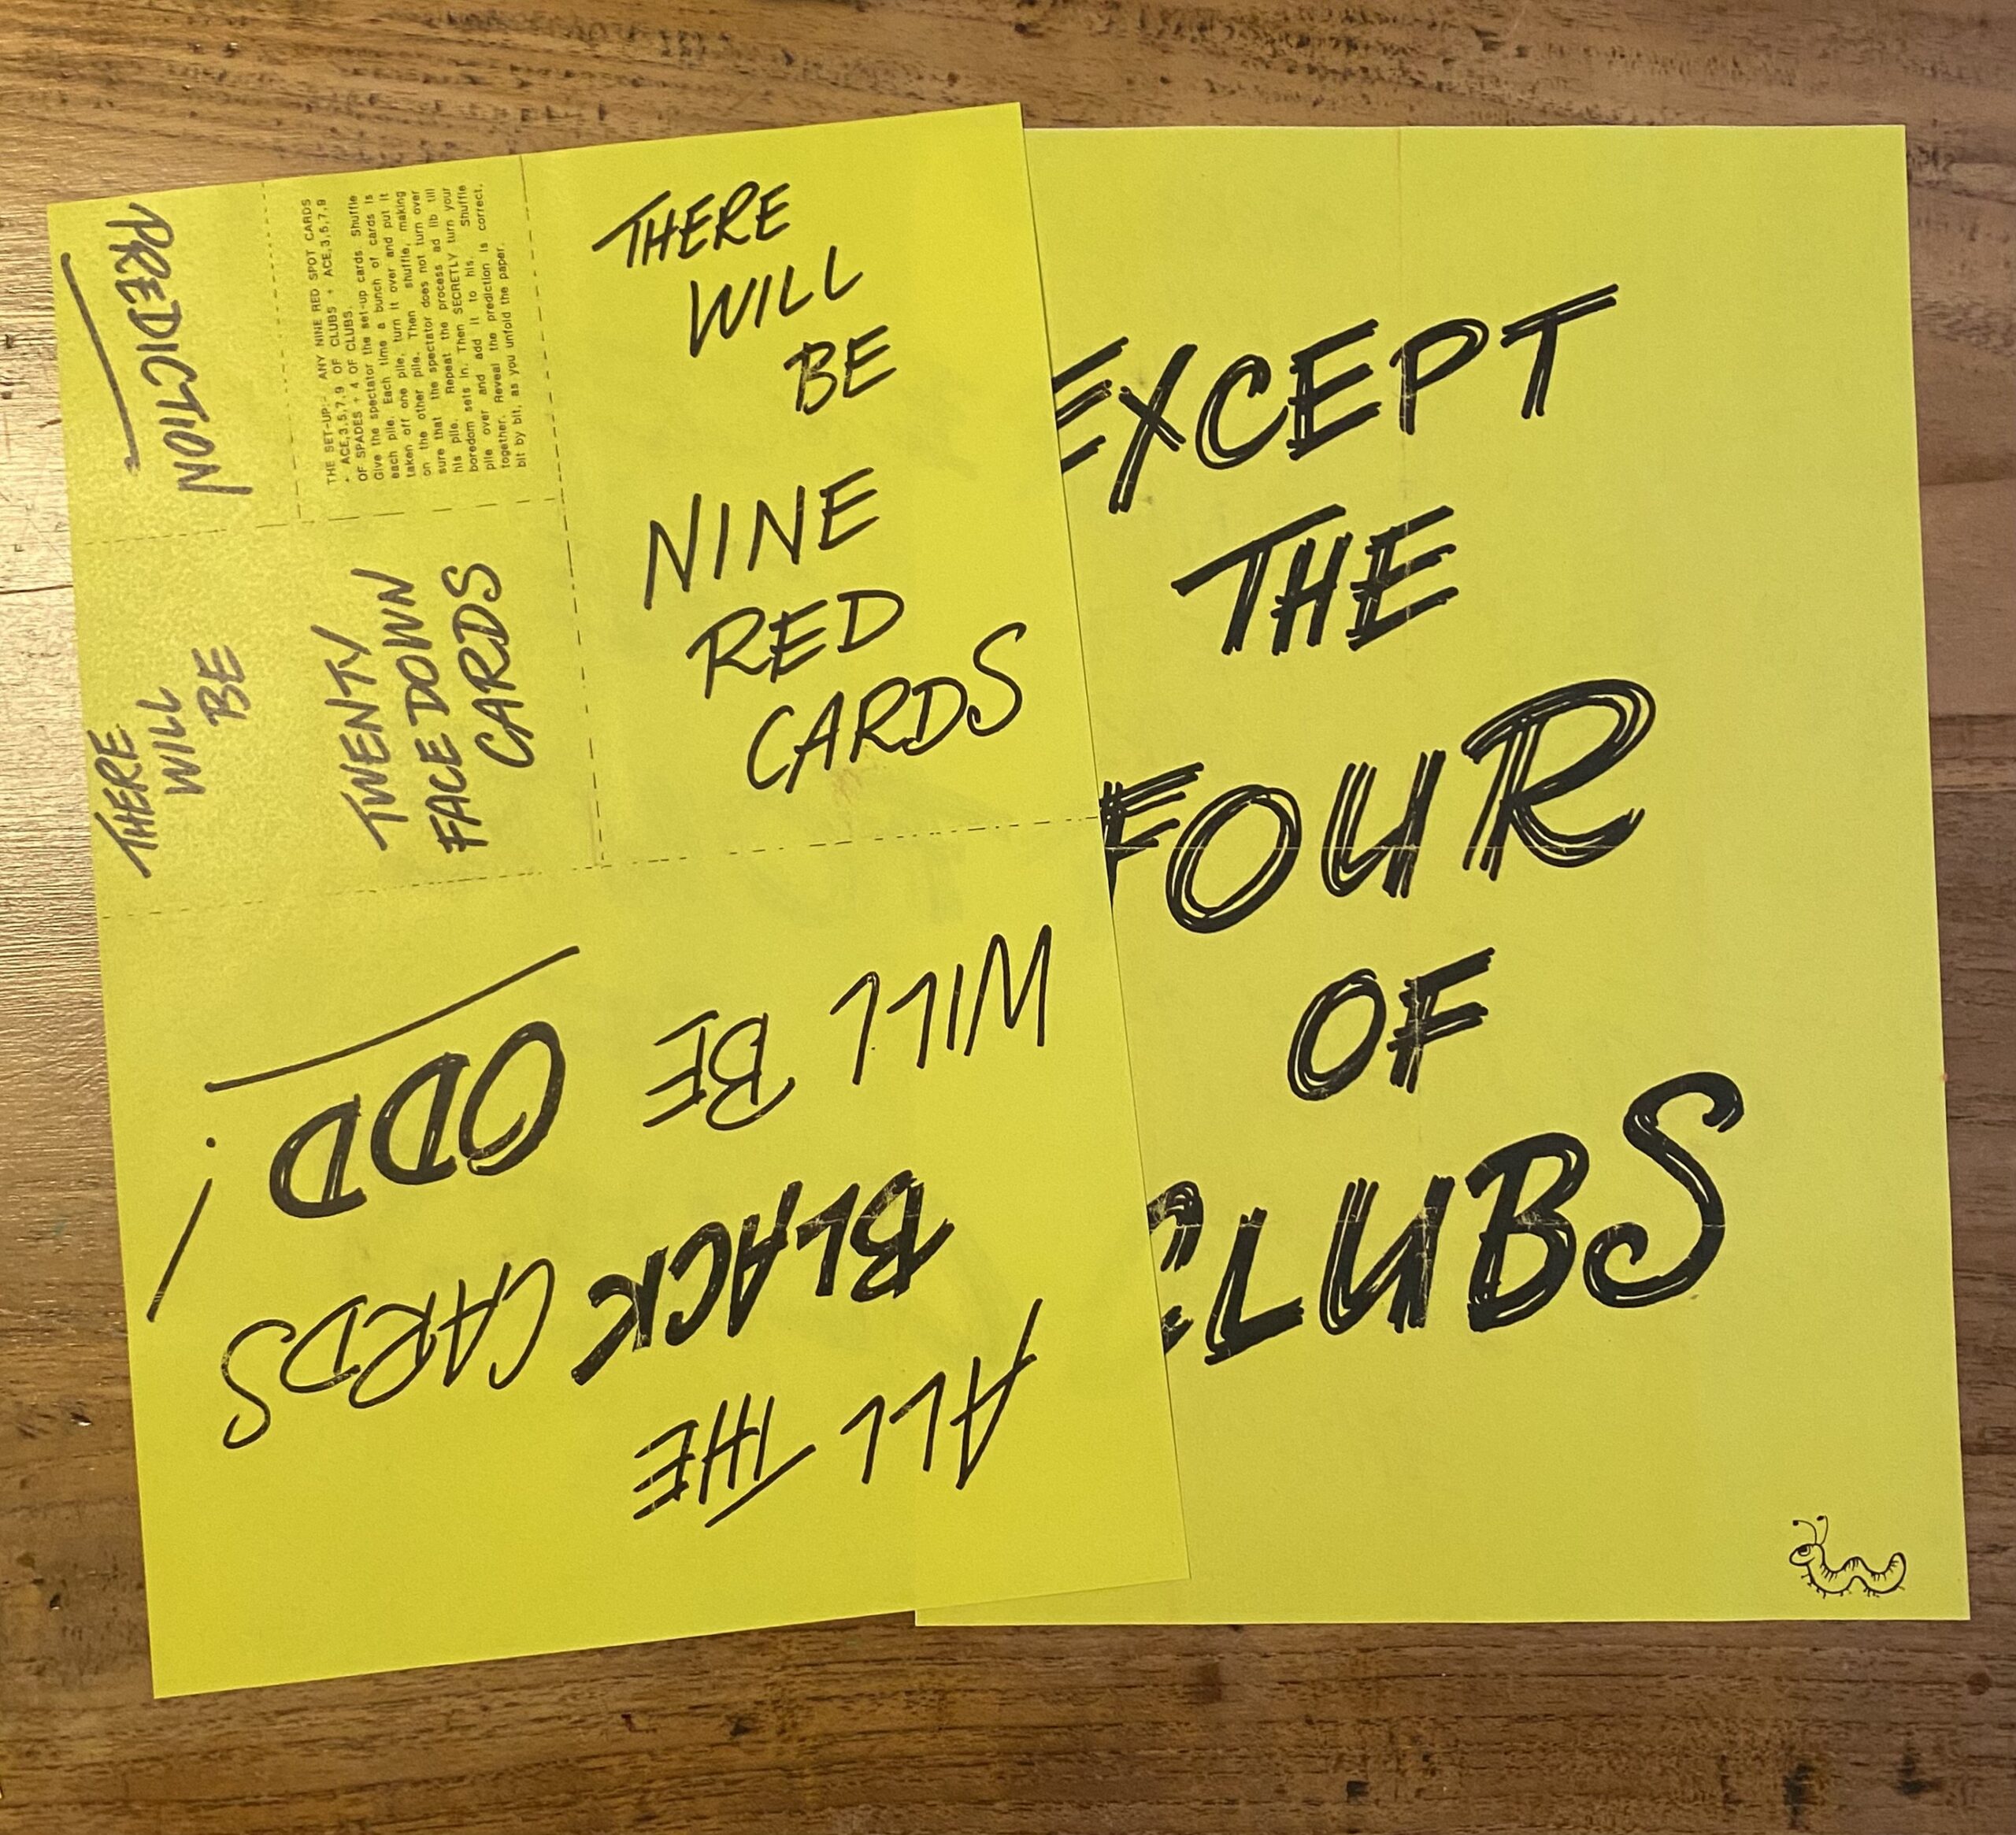 PREDICTION
THE SET-UP:- ANY NINE RED SPOT CARDS
+ ACE,3,5,7,9 OF CLUBS + ACE,3,5,7,9
OF SPADES + 4 OF CLUBS.
Give the spectator the set-up cards. Shuffle
each pile. Each time a bunch of cards is
taken off one pile, turn it over and put it
on the other pile. Then shuffle, making
sure that the spectator does not turn over
his pile. Repeat the process ad lib till
boredom sets in. Then SECRETLY turn your
pile over and add it to his. Shuffle
together. Reveal the prediction is correct,
bit by bit, as you unfold the paper.
THERE
WILL
BE
TWENTY
FACE DOWN
CARDS
THERE
WILL
BE
NINE
RED
CARDS
ALL THE
BLACK CARDS
WILL BE ODD!
EXCEPT
THE
FOUR
OF
CLUBS